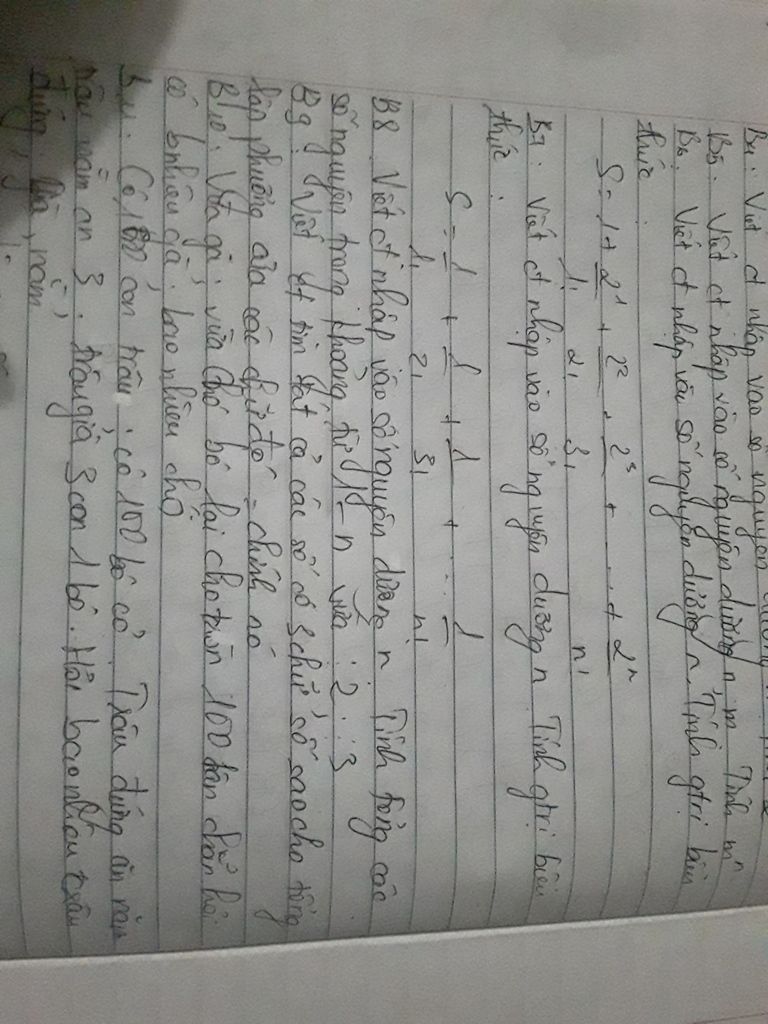 B4: Viết ct nhập vào số nguyên dương n. Tính
B5: Viết ct nhập vào số nguyên dương n m Tính mⁿ
B6: Viết ct nhập vào số nguyên dương n. Tính gtrị biểu
thức :
S = 1 + 2¹/1! + 2²/2! + 2³/3! + ... + 2ⁿ/n!
B7: Viết ct nhập vào số nguyên dương n Tính gtrị biểu
thức :
S = 1/1! + 1/2! + 1/3! + ... 1/n!
B8 Viết ct nhập vào số nguyên dương n Tính tổng các
số nguyên trong khoảng từ 1 - n vừa ⋮ 2 ⋮ 3
B9: Viết ct tìm tất cả các số có 3 chữ số sao cho tổng
lập phương của các chữ đó = chính nó
B10: Vừa gà, vừa chó bó lại cho tròn 100 chân chẵn hỏi
có bnhiêu gà, bao nhiêu chó
B11. Có 100 con trâu, có 100 bó cỏ. Trâu đứng ăn năm
trâu nằm ăn 3. trâu già 3 con 1 bó. Hỏi bao nhiêu trâu
đứng, già, nằm